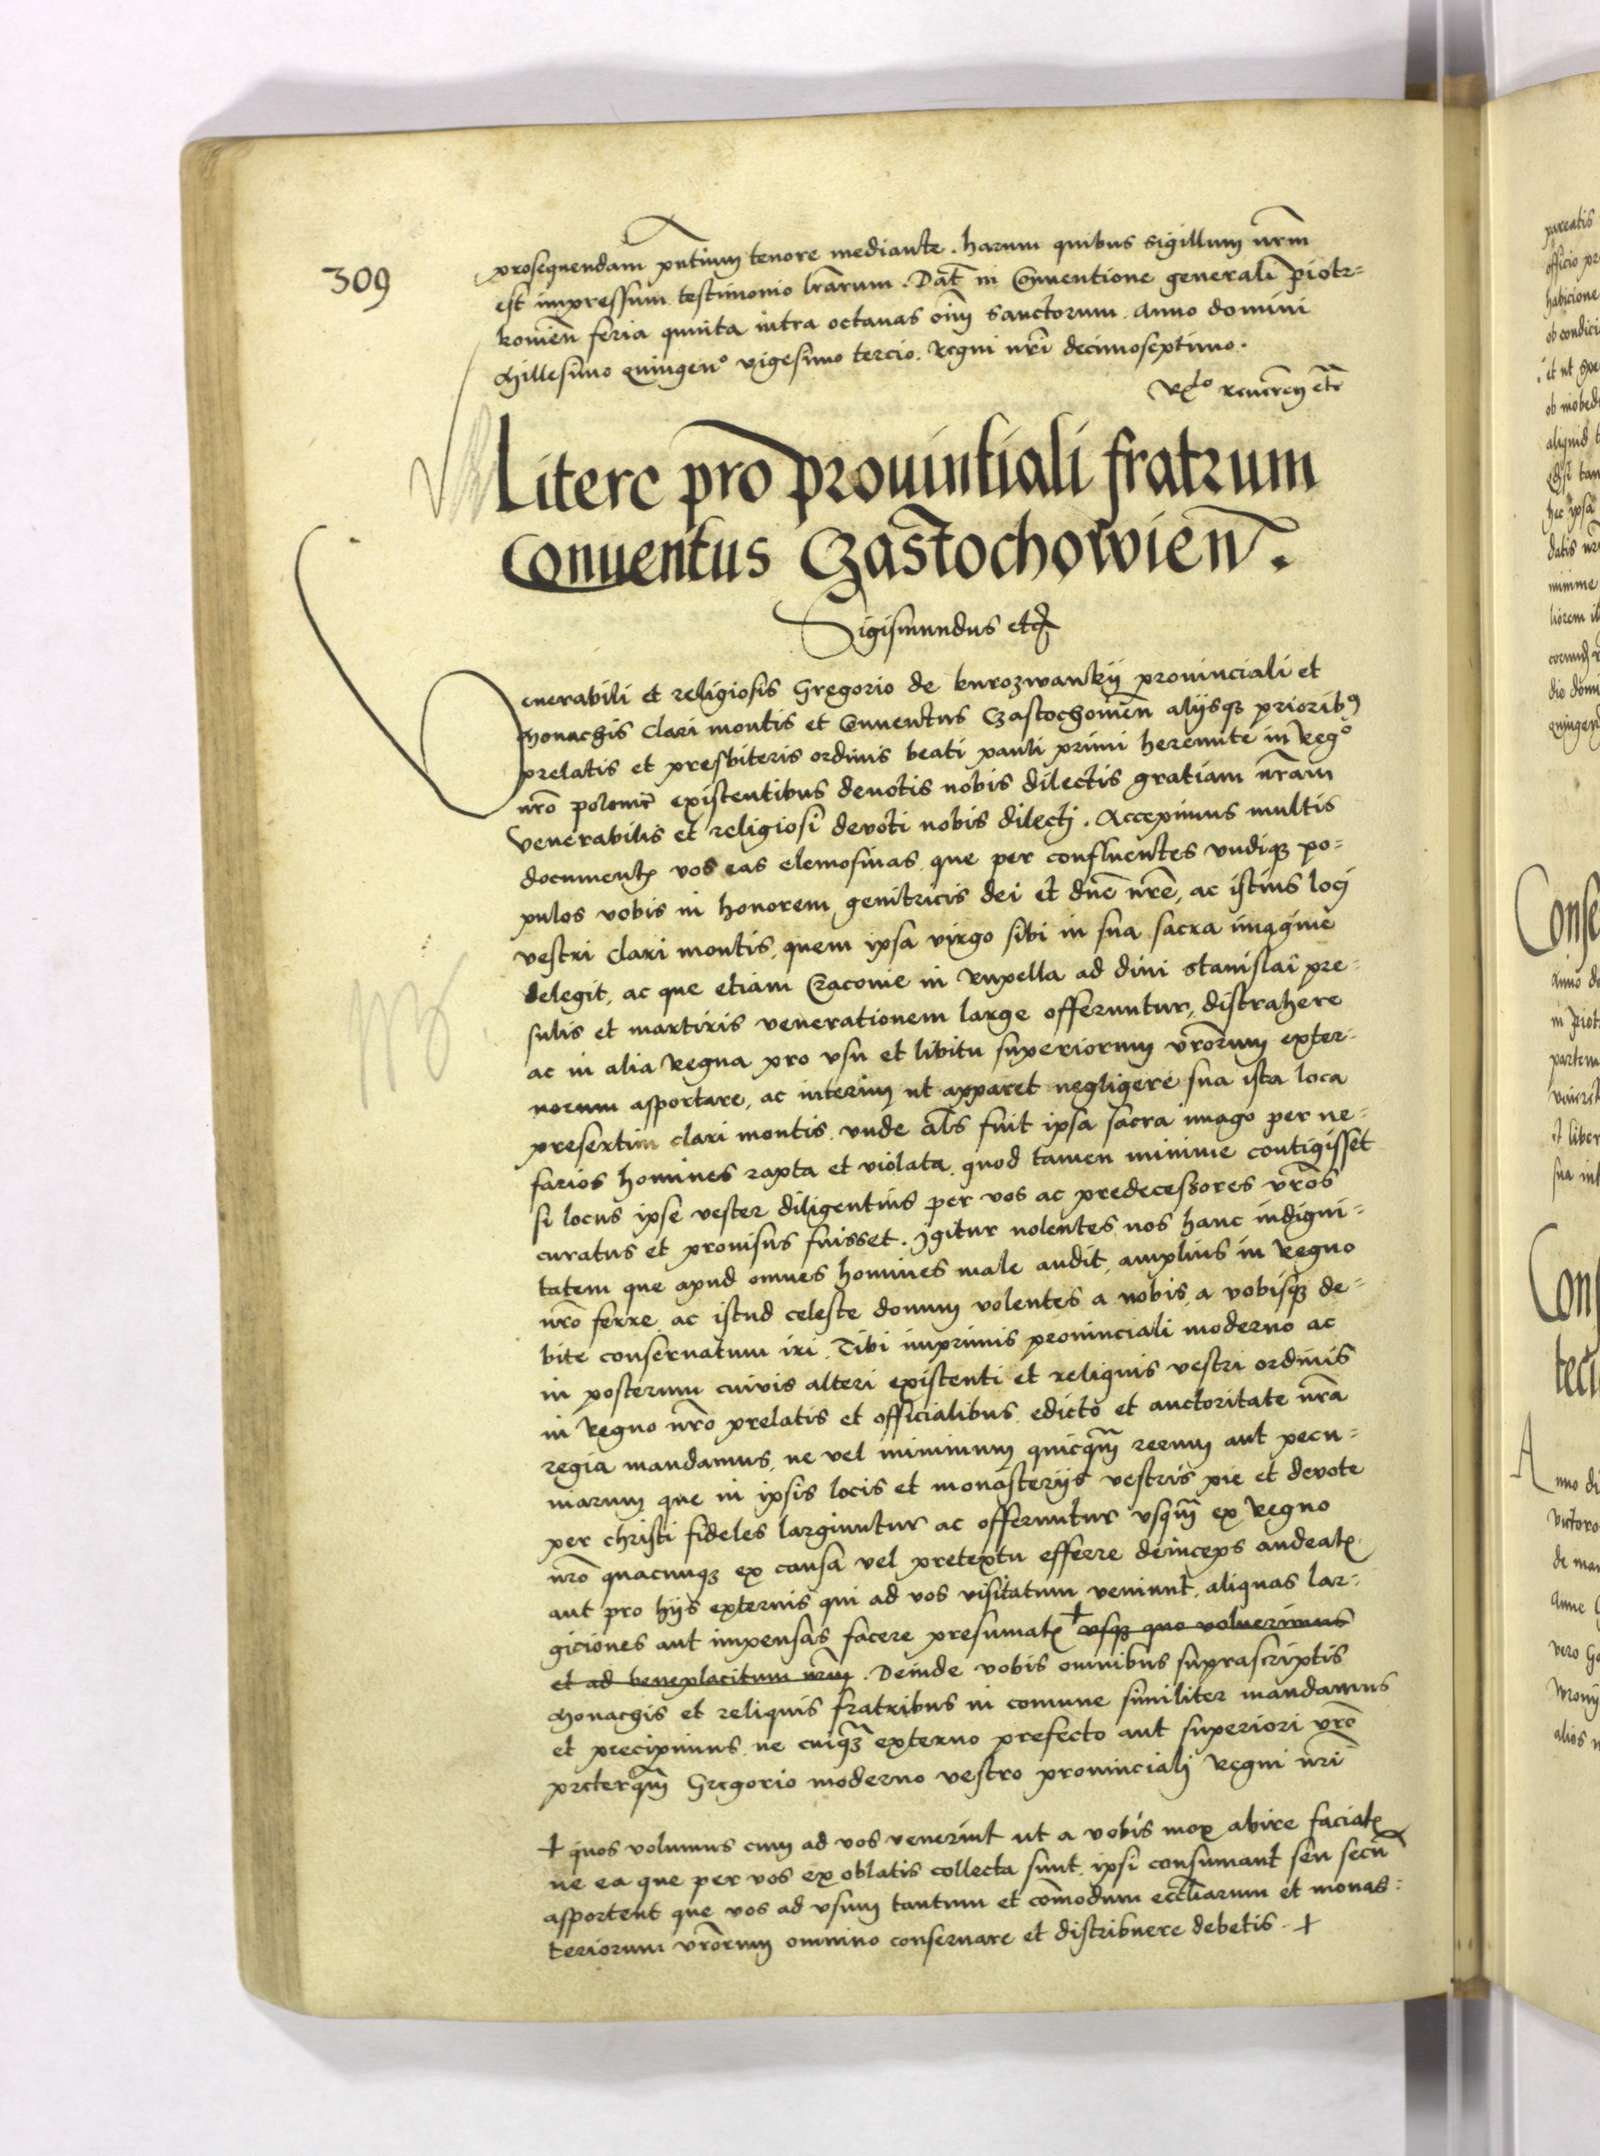 309
prosequendam pñtium tenore mediante. harum quibus sigillum nr̃m
est impressum testimonio lr̃arum. Dat̃ in Conuentione generali piotr=
kouien̄ feria quinta intra octauas oīm sanctorum. Anno domini
Millesimo quingen° vigesimo tercio. Regni nr̃i decimoseptimo.
Litere pro prouintiali fratrum
Conuentus Czastochowien̄.
Sigismundus etc̃
Venerabili et religiosis Gregorio de kurozwankij prouinciali et
Monachis clari montis et Conuentus Czastochouien̄ alijsqȝ prioribꝰ
prelatis et presbiteris ordinis beati pauli primi heremite in Reg°
nr̃o polonie existentibus deuotis nobis dilectis gratiam nr̃am
Venerabilis et religiosi devoti nobis dilecti. Accepimus multis
documentꝭ vos eas elemosinas que per confluentes vndiqȝ po=
pulos vobis in honorem genitricis dei et dn̄e nr̃e, ac istius loci
vestri clari montis, quem ipsa virgo sibi in sua sacra imagine
delegit, ac que etiam Cracouie in Rupella ad diui stanislai pre=
sulis et martiris venerationem large offeruntur, distrahere
ac in alia Regna pro vsu et libitu superiorum vr̃orum exter=
norum asportare, ac interim ut apparet negligere sua ista loca
presertim clari montis, vnde al̃s fuit ipsa sacra imago per ne=
farios homines rapta et violata, quod tamen minime contigisset
si locus ipse vester diligentius per vos ac predecessores vr̃os
curatus et prouisus fuisset. Igitur nolentes nos hanc indigni=
tatem que apud omnes homines male audit, amplius in Regno
nr̃o ferre, ac istud celeste donum volentes a nobis, a vobisqȝ de=
bite conseruatum iri. Tibi imprimis prouinciali moderno ac
in posterum cuivis alteri existenti et reliquis vestri ordinis
in Regno nr̃o prelatis et officialibus, edicto et auctoritate nr̃a
regia mandamus, ne vel minimum quicqȝm̃ rerum aut pecu=
niarum que in ipsis locis et monasterijs vestris pie et devote
per christi fideles largiuntur ac offeruntur vsqm̃ ex Regno
nr̃o quacunqȝ ex causa vel pretextu efferre deinceps audeatꝭ
aut pro hijs externis qui ad vos visitatum veniunt, aliquas lar=
giciones aut impensas facere presumatꝭ + vsqȝ quo voluerimus
et ad beneplacitum nr̃m. Deinde vobis omnibus suprascriptis
Monachis et reliquis fratribus in comune similiter mandamus
et precipimus, ne cuiqȝ̃ externo prefecto aut superiori vr̃o
preterqm̃ Gregorio moderno vestro prouinciali Regni nr̃i
+ quos volumus cum ad vos venerint ut a vobis mox abire faciatꝭ
ne ea que per vos ex oblatis collecta sunt, ipsi consumant seu secū
asportent que vos ad vsum tantum et com̄odum eccl̃iarum et monas=
teriorum vr̃orum omnino conseruare et distribuere debetis. +